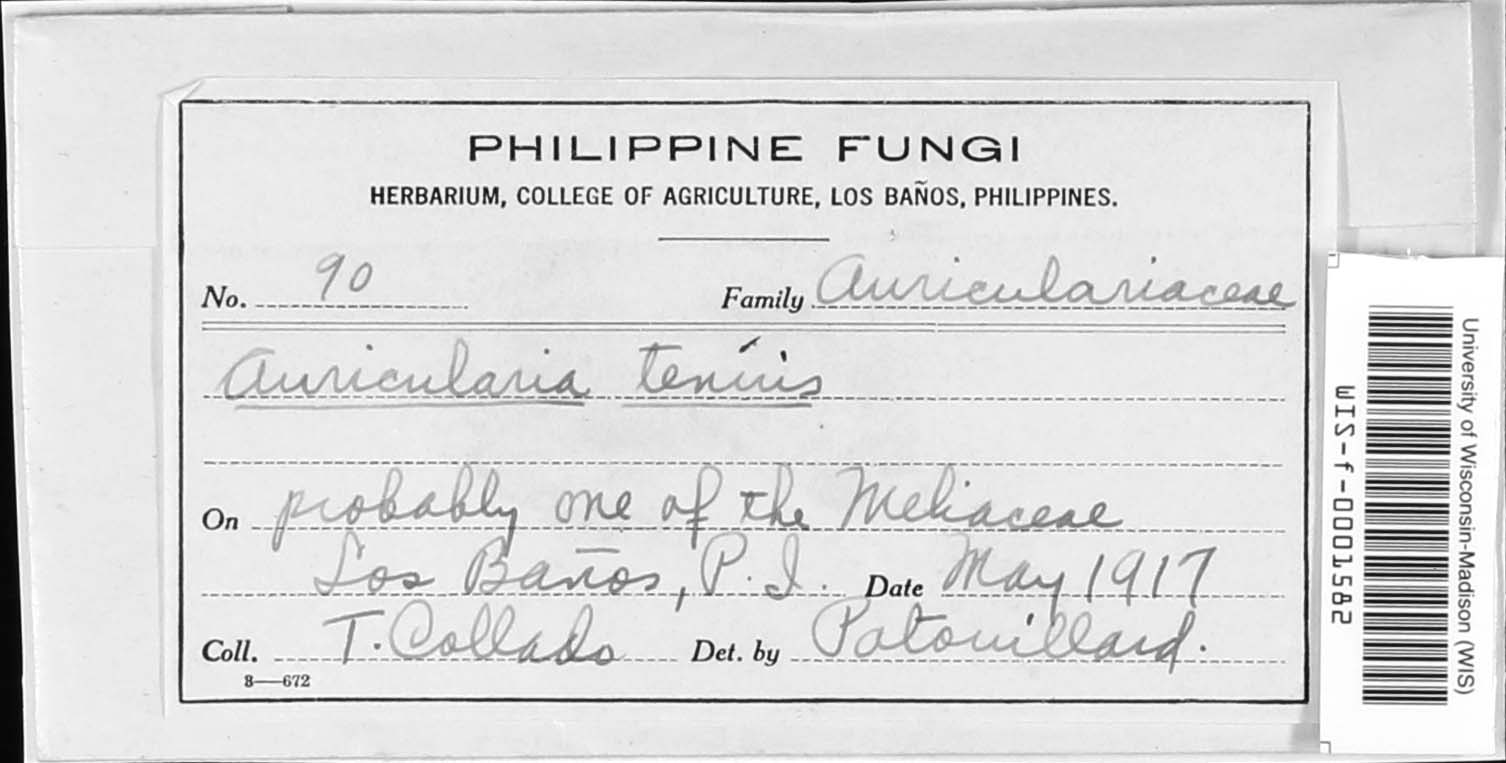 PHILIPPINE FUNGI
HERBARIUM, COLLEGE OF AGRICULTURE, LOS BAÑOS, PHILIPPINES.
No. 90 Family Auriculariaceae
Auricularia tenuis
On probably one of the Meliaceae
Los Baños, P. I. Date May 1917
Coll. T. Collado Det. by Patouillard.
8—672
University of Wisconsin-Madison (WIS)
WIS-f-0001582